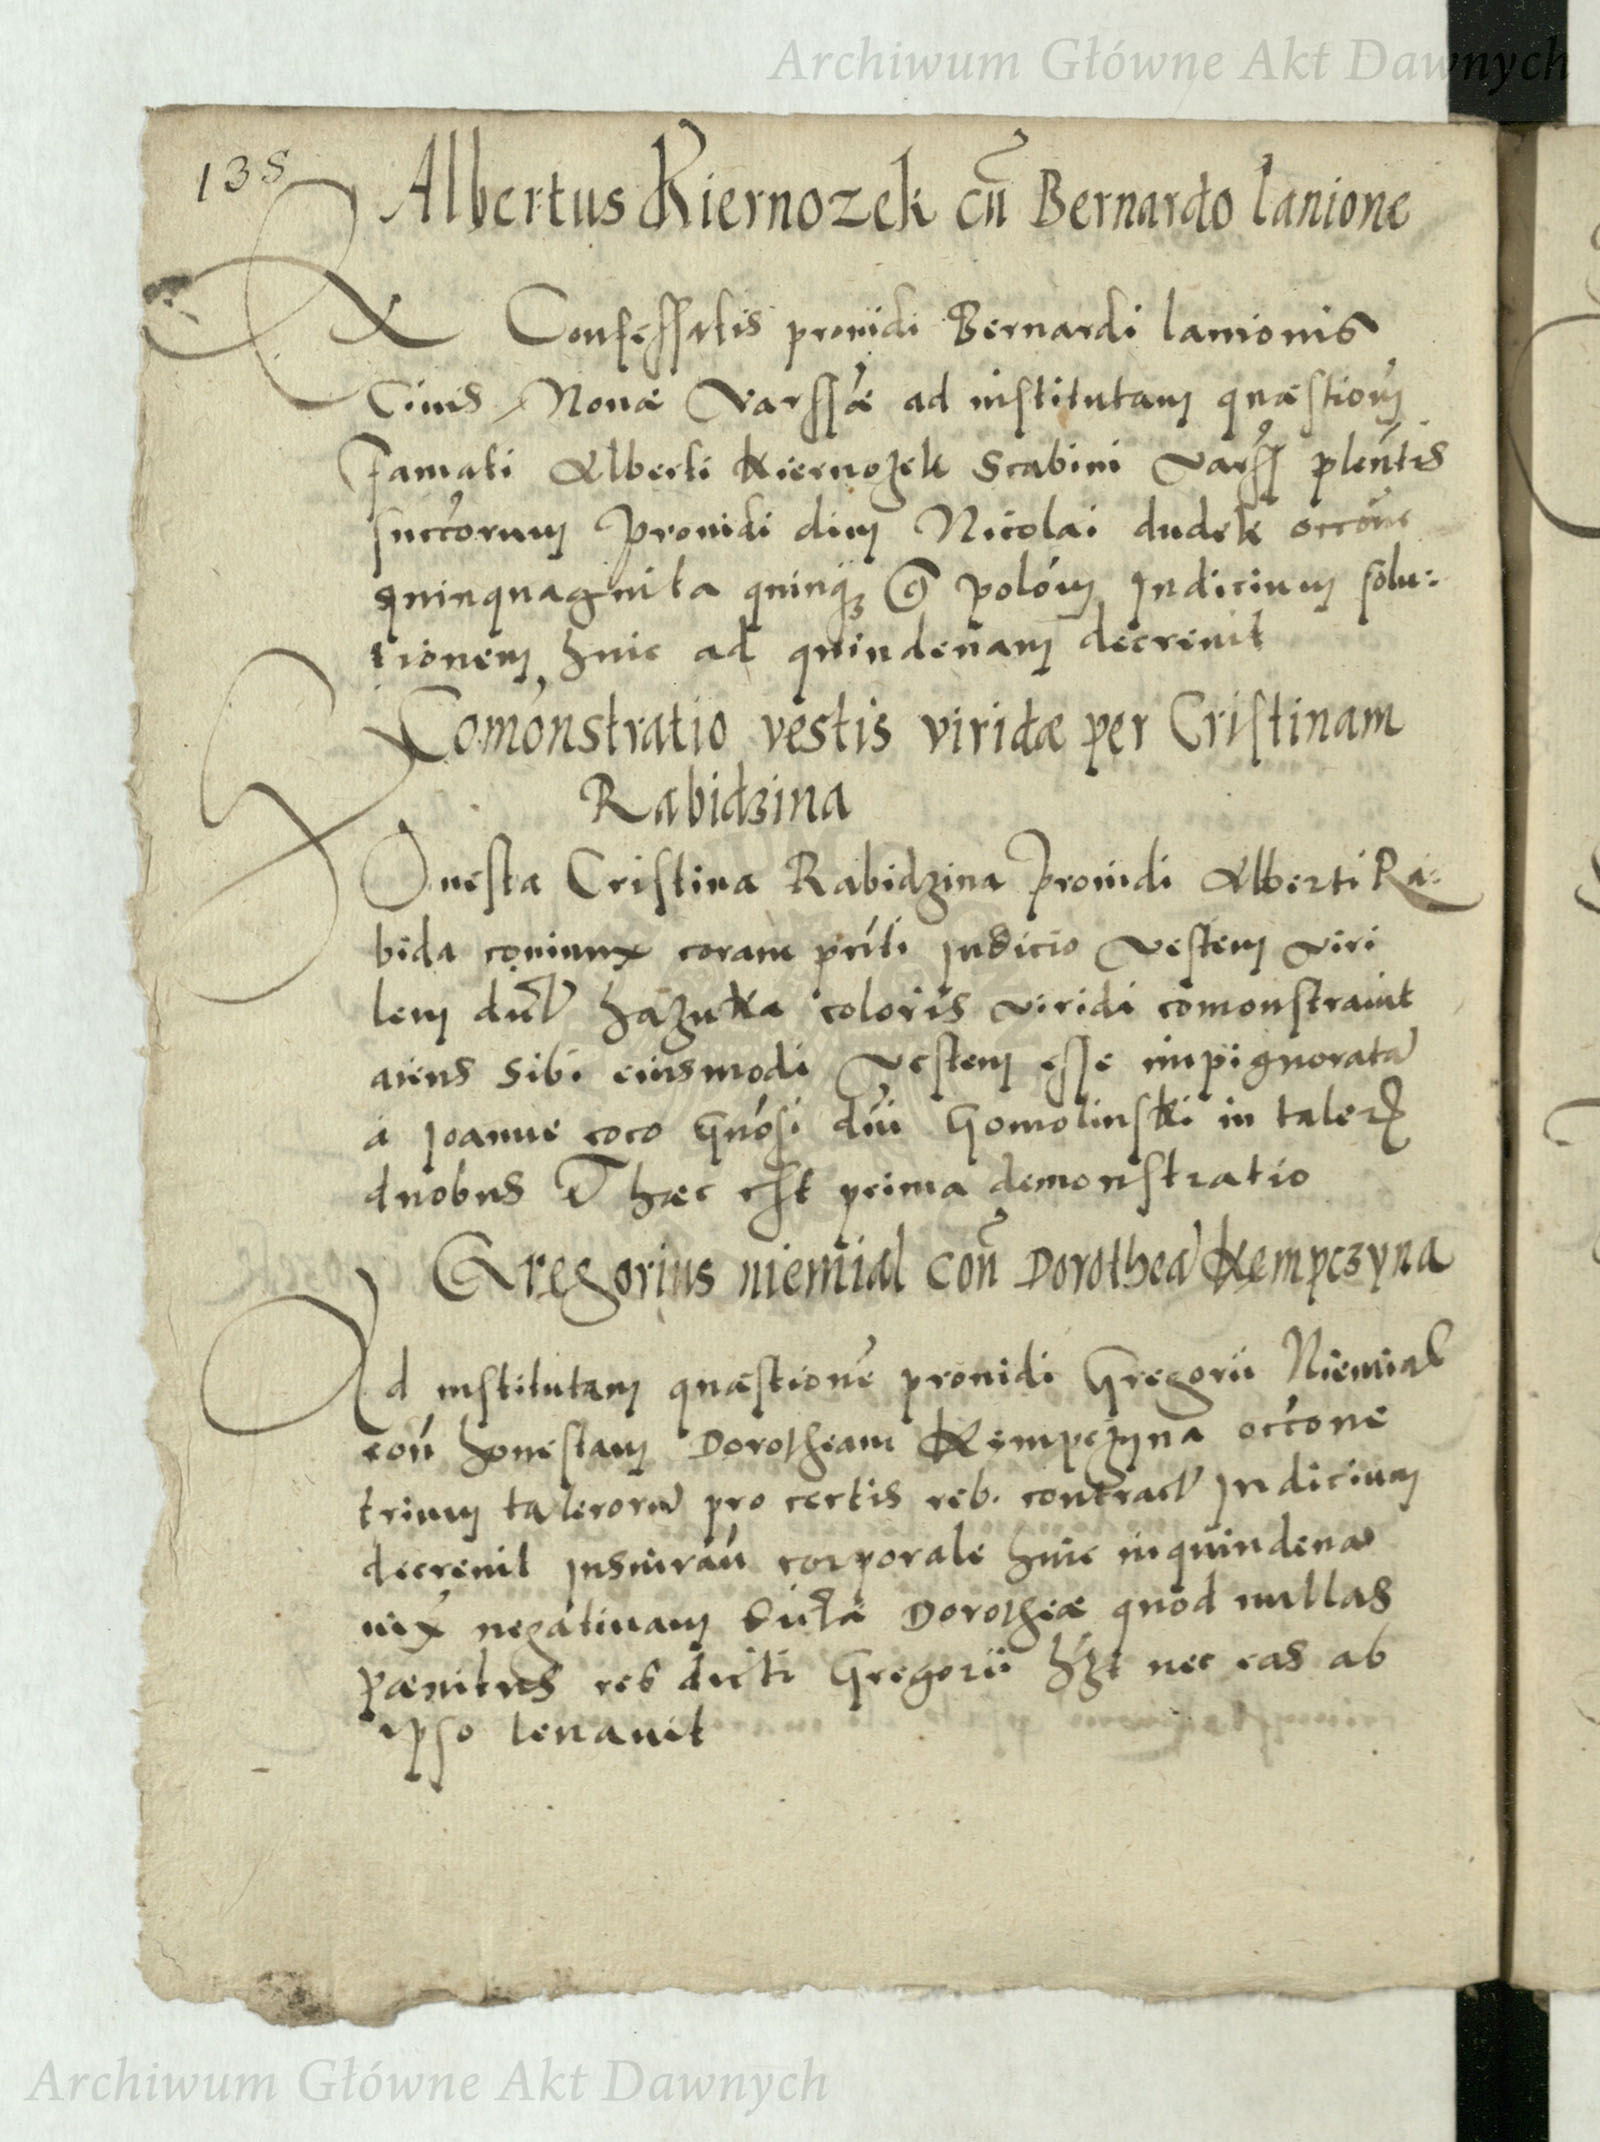 Archiwum Główne Akt Dawnych
138
Albertus Kiernozek cū Bernardo Lanione
Ex Confessatis prouidi Bernardi lanionis
Ciuis Nouæ Varssæ ad institutam quæstiom̄
Famati Alberti Kiernozek Scabini Varss plen̄tis
succorum prouidi dim Nicolai dudek occōne
quinquaginta quinqꝫ polōm Iudicium solu:
tionem huic ad quindenam decreuit
Comōnstratio vestis viridæ per Cristinam
Rabidzina
Onesta Cristina Rabidzina prouidi Alberti Ra:
bida coniunx coram pn̄ti Iudicio vestem viri
lem hazuka coloris viridi comonstrauit
aiens sibi eiusmodi vestem esse impignoratā
a Ioanne coco Gn̄osi dn̄i Gomolinski in taler
duobus Et hæc est prima demonstratio
Gregorius niemial con̄ Dorotheā Kempczyna
Ad institutam quæstionē prouidi Gregorii Niemial
con̄ honestam Dorotheam Kempczyna occōne
trium talerorū pro certis reb. contract Iudicium
decreuit Iusiurān corporale huic in quindenā
iux negatiuam dictæ Dorotheæ quod nullas
pænitus res dicti Gregorii hꝫt nec eas ab
ipso leuauit
Archiwum Główne Akt Dawnych